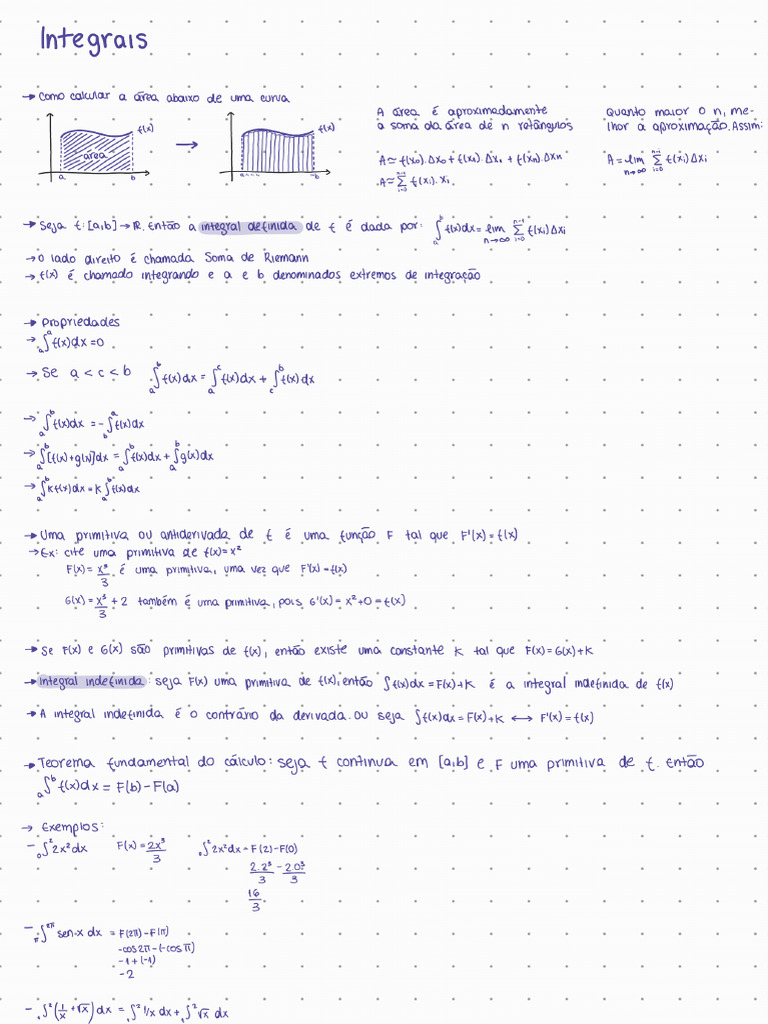 Integrais
→ como calcular a área abaixo de uma curva
f(x)
área
a b
→
f(x)
a b
A área é aproximadamente
a soma da área de n retângulos
A ≃ f(x₀).Δx₀ + f(x₁).Δx₁ + f(xₙ).Δxₙ
A ≃ ∑ᵢ₌₀ⁿ⁻¹ f(xᵢ).xᵢ
Quanto maior o n, me-
lhor a aproximação. Assim:
A = lim n→∞ ∑ᵢ₌₀ⁿ⁻¹ f(xᵢ)Δxᵢ
→ Seja f: [a,b] → R. Então a integral definida de f é dada por: ∫ₐᵇ f(x)dx = lim n→∞ ∑ᵢ₌₀ⁿ⁻¹ f(xᵢ)Δxᵢ
→ o lado direito é chamada Soma de Riemann
→ f(x) é chamado integrando e a e b denominados extremos de integração
→ Propriedades
→ ∫ₐᵃ f(x)dx = 0
→ Se a < c < b ∫ₐᵇ f(x)dx = ∫ₐᶜ f(x)dx + ∫꜀ᵇ f(x)dx
→ ∫ₐᵇ f(x)dx = -∫ᵦᵃ f(x)dx
→ ∫ₐᵇ [f(x)+g(x)]dx = ∫ₐᵇ f(x)dx + ∫ₐᵇ g(x)dx
→ ∫ₐᵇ Kf(x)dx = K ∫ₐᵇ f(x)dx
→ Uma primitiva ou antiderivada de f é uma função F tal que F'(x) = f(x)
→ Ex: cite uma primitiva de f(x) = x²
F(x) = x³/3 é uma primitiva, uma vez que F'(x) = f(x)
G(x) = x³/3 + 2 também é uma primitiva, pois G'(x) = x²+0 = f(x)
→ Se F(x) e G(x) são primitivas de f(x), então existe uma constante K tal que F(x) = G(x)+K
→ Integral indefinida: seja F(x) uma primitiva de f(x), então ∫f(x)dx = F(x)+K é a integral indefinida de f(x)
→ A integral indefinida é o contrário da derivada. ou seja ∫f(x)dx = F(x)+K ⟷ F'(x) = f(x)
→ Teorema fundamental do cálculo: seja f continua em [a,b] e F uma primitiva de f. Então
∫ₐᵇ f(x)dx = F(b) - F(a)
→ Exemplos:
- ∫₀² 2x²dx F(x) = 2x³/3 ∫₀² 2x²dx = F(2) - F(0)
2.2³/3 - 2.0³/3
16/3
- ∫π²π sen.x dx = F(2π) - F(π)
-cos2π - (-cosπ)
-1 + (-1)
-2
- ∫₁² (1/x + √x) dx = ∫₁² 1/x dx + ∫₁² √x dx